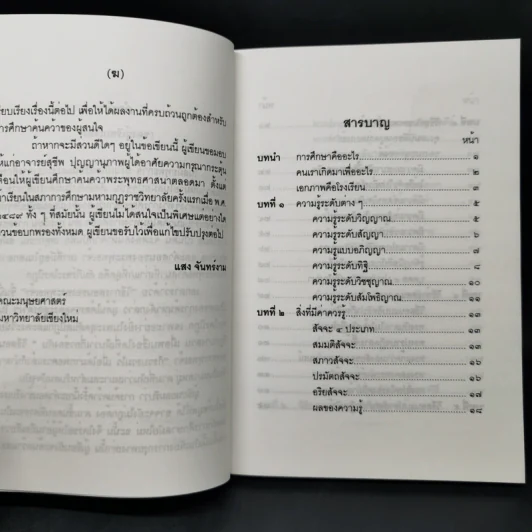 (ฆ)
รียบเรียงเรื่องนี้ต่อไป เพื่อให้ได้ผลงานที่ครบถ้วนถูกต้องสำหรับ
การศึกษาค้นคว้าของผู้สนใจ
ถ้าหากจะมีส่วนดีใดๆ อยู่ในข้อเขียนนี้ ผู้เขียนขอมอบ
ให้แก่อาจารย์สุชีพ ปุญญานุภาพผู้ได้อาศัยความกรุณากระตุ้น
เตือนให้ผู้เขียนศึกษาค้นคว้าพระพุทธศาสนาตลอดมา ตั้งแต่
มาเรียนในสภาการศึกษามหามกุฏราชวิทยาลัยครั้งแรกเมื่อ พ.ศ.
๒๔๘๙ ทั้ง ๆ ที่สมัยนั้น ผู้เขียนไม่ได้สนใจเป็นพิเศษแต่อย่างใด
ส่วนข้อบกพร่องทั้งหมด ผู้เขียนขอรับไว้เพื่อแก้ไขปรับปรุงต่อไป
แสง จันทร์งาม
คณะมนุษยศาสตร์
มหาวิทยาลัยเชียงใหม่
สารบาญ
หน้า
บทนำ การศึกษาคืออะไร ๑
คนเราเกิดมาเพื่ออะไร ๒
เอกภาพคือโรงเรียน ๓
บทที่ ๑ ความรู้ระดับต่าง ๆ ๕
ความรู้ระดับวิญญาณ ๕
ความรู้ระดับสัญญา ๖
ความรู้แบบอภิญญา ๗
ความรู้ระดับทิฐิ ๘
ความรู้ระดับวิชชุญาณ ๑๐
ความรู้ระดับสัมโพธิญาณ ๑๑
บทที่ ๒ สิ่งที่มีค่าควรรู้ ๑๓
สัจจะ ๔ ประเภท ๑๓
สมมติสัจจะ ๑๓
สภาวสัจจะ ๑๖
ปรมัตถสัจจะ ๑๖
อริยสัจจะ ๑๗
ผลของความรู้ ๑๘